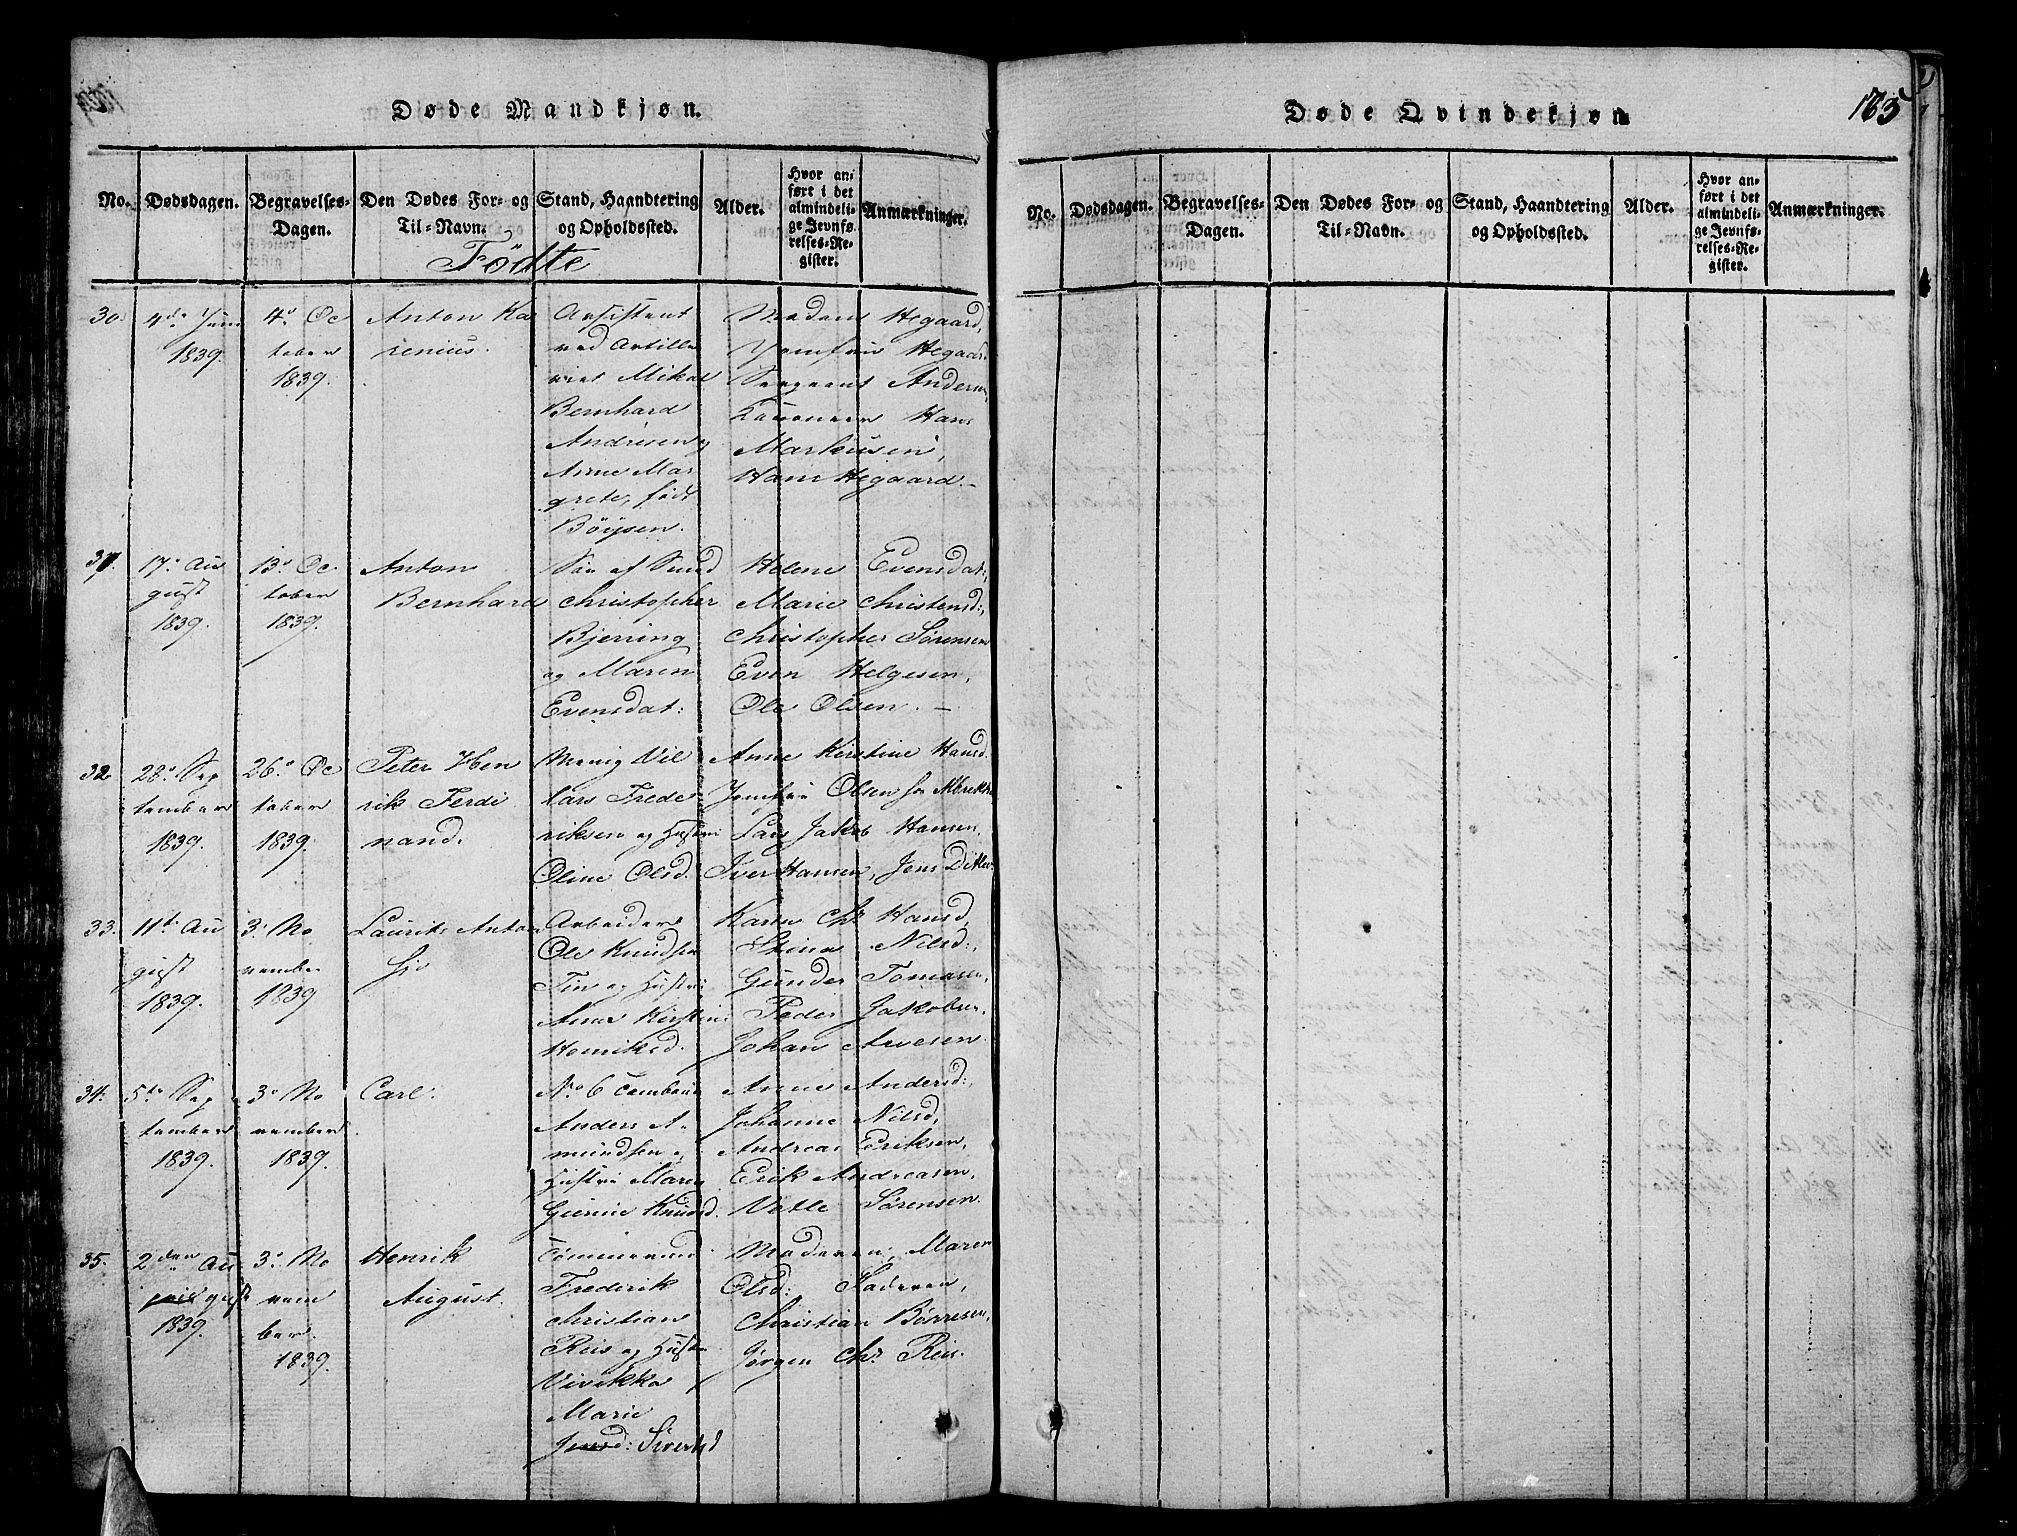 Døde Mandkjøn.
No.
Dødsdagen.
Begravelses-
Dagen.
Den Dødes For- og
Til-Navn.
Stand, Haandtering
og Opholdssted.
Alder.
Hvor an-
ført i det
almindeli-
ge Jevnfø-
relses-Re-
gister.
Anmærkninger.
Födte
30.
4de Juni
1839.
4de Oc
tober
1839.
Anton Ka
renius.
Assistent
ved Artille
riet Mikal
Bernhard
Andrisen og
Anne Mar
grete, født
Böysen.
Madam Hegaard,
Jomfru Hegaard
Sergeant Andersen,
Kanoneer Hans
Markusen,
Hans Hegaard.-
31.
17de Au
gust
1839.
13de Oc
tober
1839.
Anton
Bernhard
Søn af Smed
Christopher
Bjerring
og Maren
Evensdat:
Helene Evensdat:,
Marie Christensd:,
Christopher Sörensen
Even Helgesen,
Ole Olsen. -
32.
28de Sep
tember
1839.
26de Oc
tober
1839.
Peter Hen
rik Ferdi
nand.
Menig Nil
Lars Frede
riksen og Hustru
Oline Olsd.
Anne Kirstine Hansd.
Jomfru Olsen
Lars Jakob Hansen,
Iver Hansen, Jens Ditlev
33.
11te Au
gust
1839.
3de No
vember
1839
Laurits Anton
Arbeider
Ole Knudsen
og Hustru
Anne Kirstine
Henriksd.
Karen Chr. Hansd,
Stine Nilsd:,
Gunder Tomasen,
Peder Jakobsen,
Johan Arvesen.
34.
5te Sep
tember
1839.
3de No
vember
1839.
Carl.
No 6
Anders A-
mundsen og
Hustru Maren
Gurine Knudsd.
Anne Andersd:,
Johanne Nilsd,
Andreas Eriksen,
Erik Andreasen,
Vetle Sörensen.
35.
2den Au
gust
1839.
3de No
vem
ber
1839.
Henrik
August.
Tömmermand
Frederik
Christian
Reis og Hustru
Vivikka
Marie
Jensd: Sivertsd
Madam Maren
Olsd:
Christian Börresen,
Jörgen Chr. Reis.
Døde Qvindekjøn
165
No.
Dødsdagen.
Begravelses-
Dagen.
Den Dødes For- og
Til-Navn.
Stand, Haandtering
og Opholdssted.
Alder.
Hvor an-
ført i det
almindeli-
ge Jevnfø-
relses-Re-
gister.
Anmærkninger.